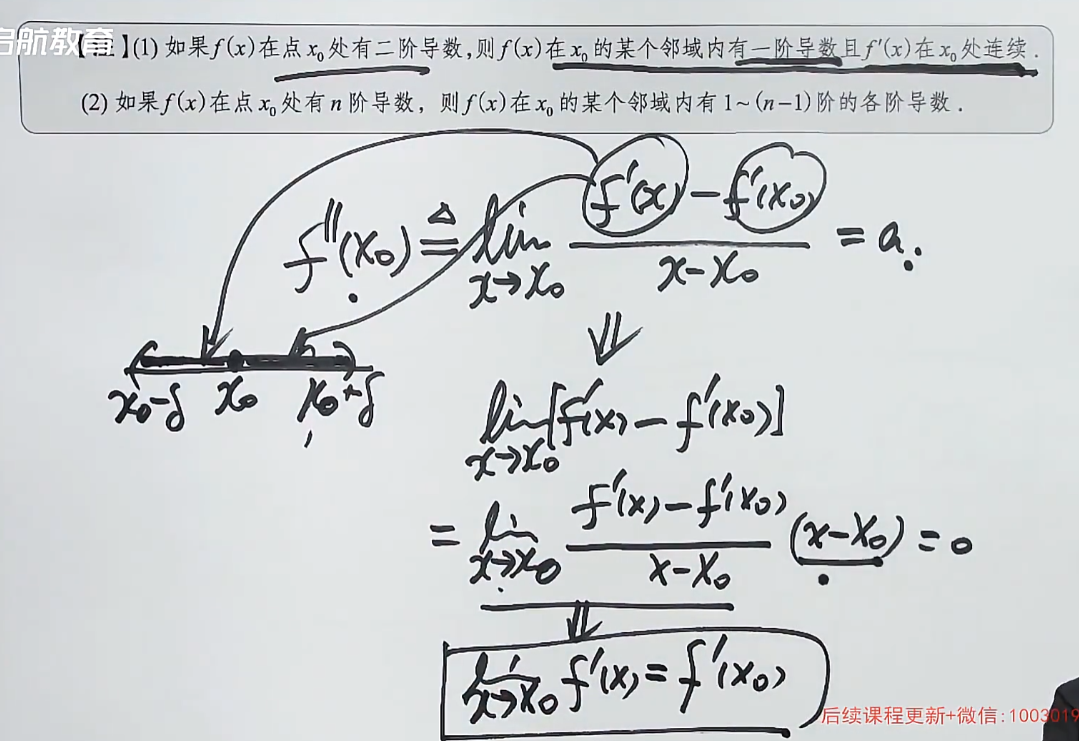 启航教育
【注】(1) 如果f(x)在点x₀处有二阶导数,则f(x)在x₀的某个邻域内有一阶导数且f′(x)在x₀处连续.
(2) 如果f(x)在点x₀处有n阶导数, 则f(x)在x₀的某个邻域内有1~(n−1)阶的各阶导数.
f″(x₀) ≜ lim_{x→x₀} (f′(x)−f′(x₀))/(x−x₀) = a.
⇓
x₀−δ x₀ x₀+δ
lim_{x→x₀} [f′(x)−f′(x₀)]
= lim_{x→x₀} (f′(x)−f′(x₀))/(x−x₀) (x−x₀) = 0
⇓
lim_{x→x₀} f′(x) = f′(x₀)
后续课程更新+微信:1003019